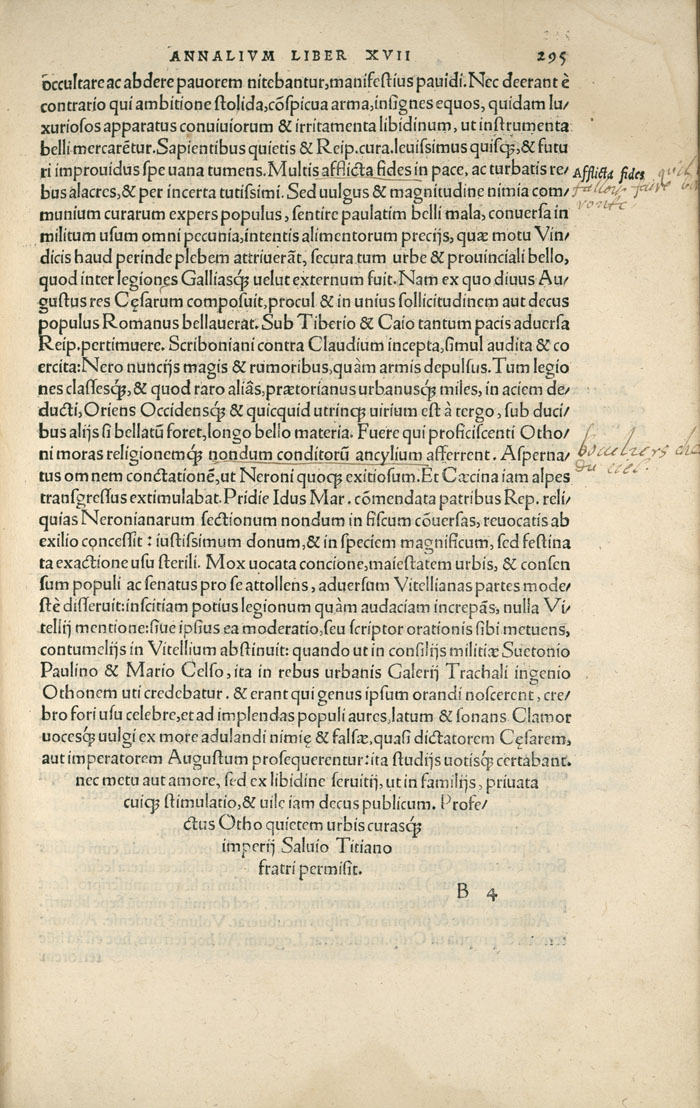 ANNALIVM LIBER XVII 295
occultare ac abdere pauorem nitebantur, manifestius pauidi. Nec deerant è
contrario qui ambitione stolida, cōspicua arma, insignes equos, quidam lu/
xuriosos apparatus conuiuiorum & irritamenta libidinum, ut instrumenta
belli mercarētur. Sapientibus quietis & Reip. cura. leuissimus quisq;, & futu
ri improuidus spe uana tumens. Multis afflicta fides in pace, ac turbatis re/
bus alacres, & per incerta tutissimi. Sed uulgus & magnitudine nimia com/
munium curarum expers populus, sentire paulatim belli mala, conuersa in
militum usum omni pecunia, intentis alimentorum precijs, quæ motu Vin/
dicis haud perinde plebem attriuerāt, secura tum urbe & prouinciali bello,
quod inter legiones Galliasq; uelut externum fuit. Nam ex quo diuus Au/
gustus res Cęsarum composuit, procul & in unius sollicitudinem aut decus
populus Romanus bellauerat. Sub Tiberio & Caio tantum pacis aduersa
Reip. pertimuere. Scriboniani contra Claudium incepta, simul audita & co
ercita: Nero nuncijs magis & rumoribus, quàm armis depulsus. Tum legio
nes classesq;, & quod raro aliâs, prætorianus urbanusq; miles, in aciem de/
ducti, Oriens Occidensq; & quicquid utrinq; uirium est à tergo, sub duci/
bus alijs si bellatū foret, longo bello materia. Fuere qui proficiscenti Otho/
ni moras religionemq; nondum conditorū ancylium afferrent. Asperna/
tus omnem cōnctationē, ut Neroni quoq; exitiosum. Et Cæcina iam alpes
transgressus extimulabat. Pridie Idus Mar. cōmendata patribus Rep. reli/
quias Neronianarum sectionum nondum in fiscum cōuersas, reuocatis ab
exilio concessit: iustissimum donum, & in speciem magnificum, sed festina
ta exactione usu sterili. Mox uocata concione, maiestatem urbis, & consen
sum populi ac senatus pro se attollens, aduersum Vitellianas partes mode/
stè disseruit: inscitiam potius legionum quàm audaciam increpās, nulla Vi/
tellij mentione: siue ipsius ea moderatio, seu scriptor orationis sibi metuens,
contumelijs in Vitellium abstinuit: quando ut in consilijs militiæ Suetonio
Paulino & Mario Celso, ita in rebus urbanis Galerij Trachali ingenio
Othonem uti credebatur. & erant qui genus ipsum orandi noscerent, cre/
bro fori usu celebre, et ad implendas populi aures, latum & sonans Clamor
uocesq; uulgi ex more adulandi nimię & falsæ, quasi dictatorem Cęsarem,
aut imperatorem Augustum prosequerentur: ita studijs uotisq; certabant.
nec metu aut amore, sed ex libidine seruitij, ut in familijs, priuata
cuiq; stimulatio, & uile iam decus publicum. Profe/
ctus Otho quietem urbis curasq;
imperij Saluio Titiano
fratri permisit.
B 4
Afflicta fides
faire
boucliers
du ciel.